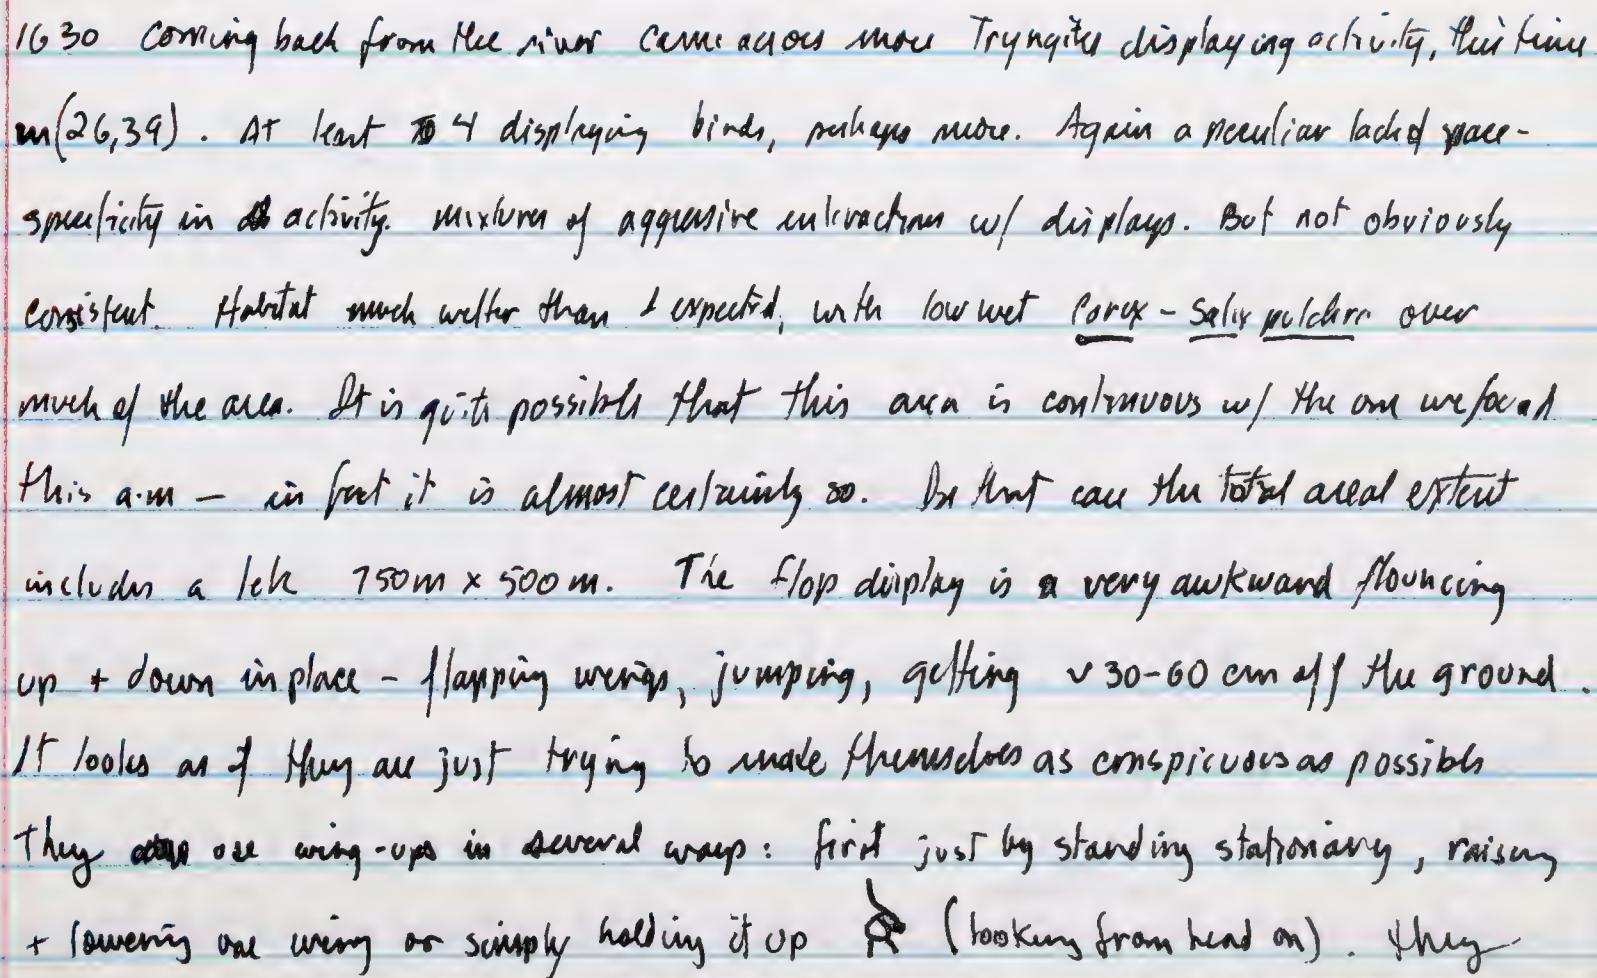 1630 Coming back from the river came across more Tryngites displaying activity, this time
in (26,39). At least 4 displaying birds, perhaps more. Again a peculiar lack of space-
specificity in activity. mixtures of aggressive interactions w/ displays. But not obviously
consistent. Habitat much wetter than I expected, with low wet Carex - Salix pulchra over
much of the area. It is quite possible that this area is continuous w/ the one we found
this a.m — in fact it is almost certainly so. In that case the total areal extent
includes a lek 750m x 500m. The flop display is a very awkward flouncing
up + down in place - flapping wings, jumping, getting ~ 30-60 cm off the ground.
It looks as if they are just trying to make themselves as conspicuous as possible
They use wing-ups in several ways: first just by standing stationary, raising
+ lowering one wing or simply holding it up (looking from head on). They